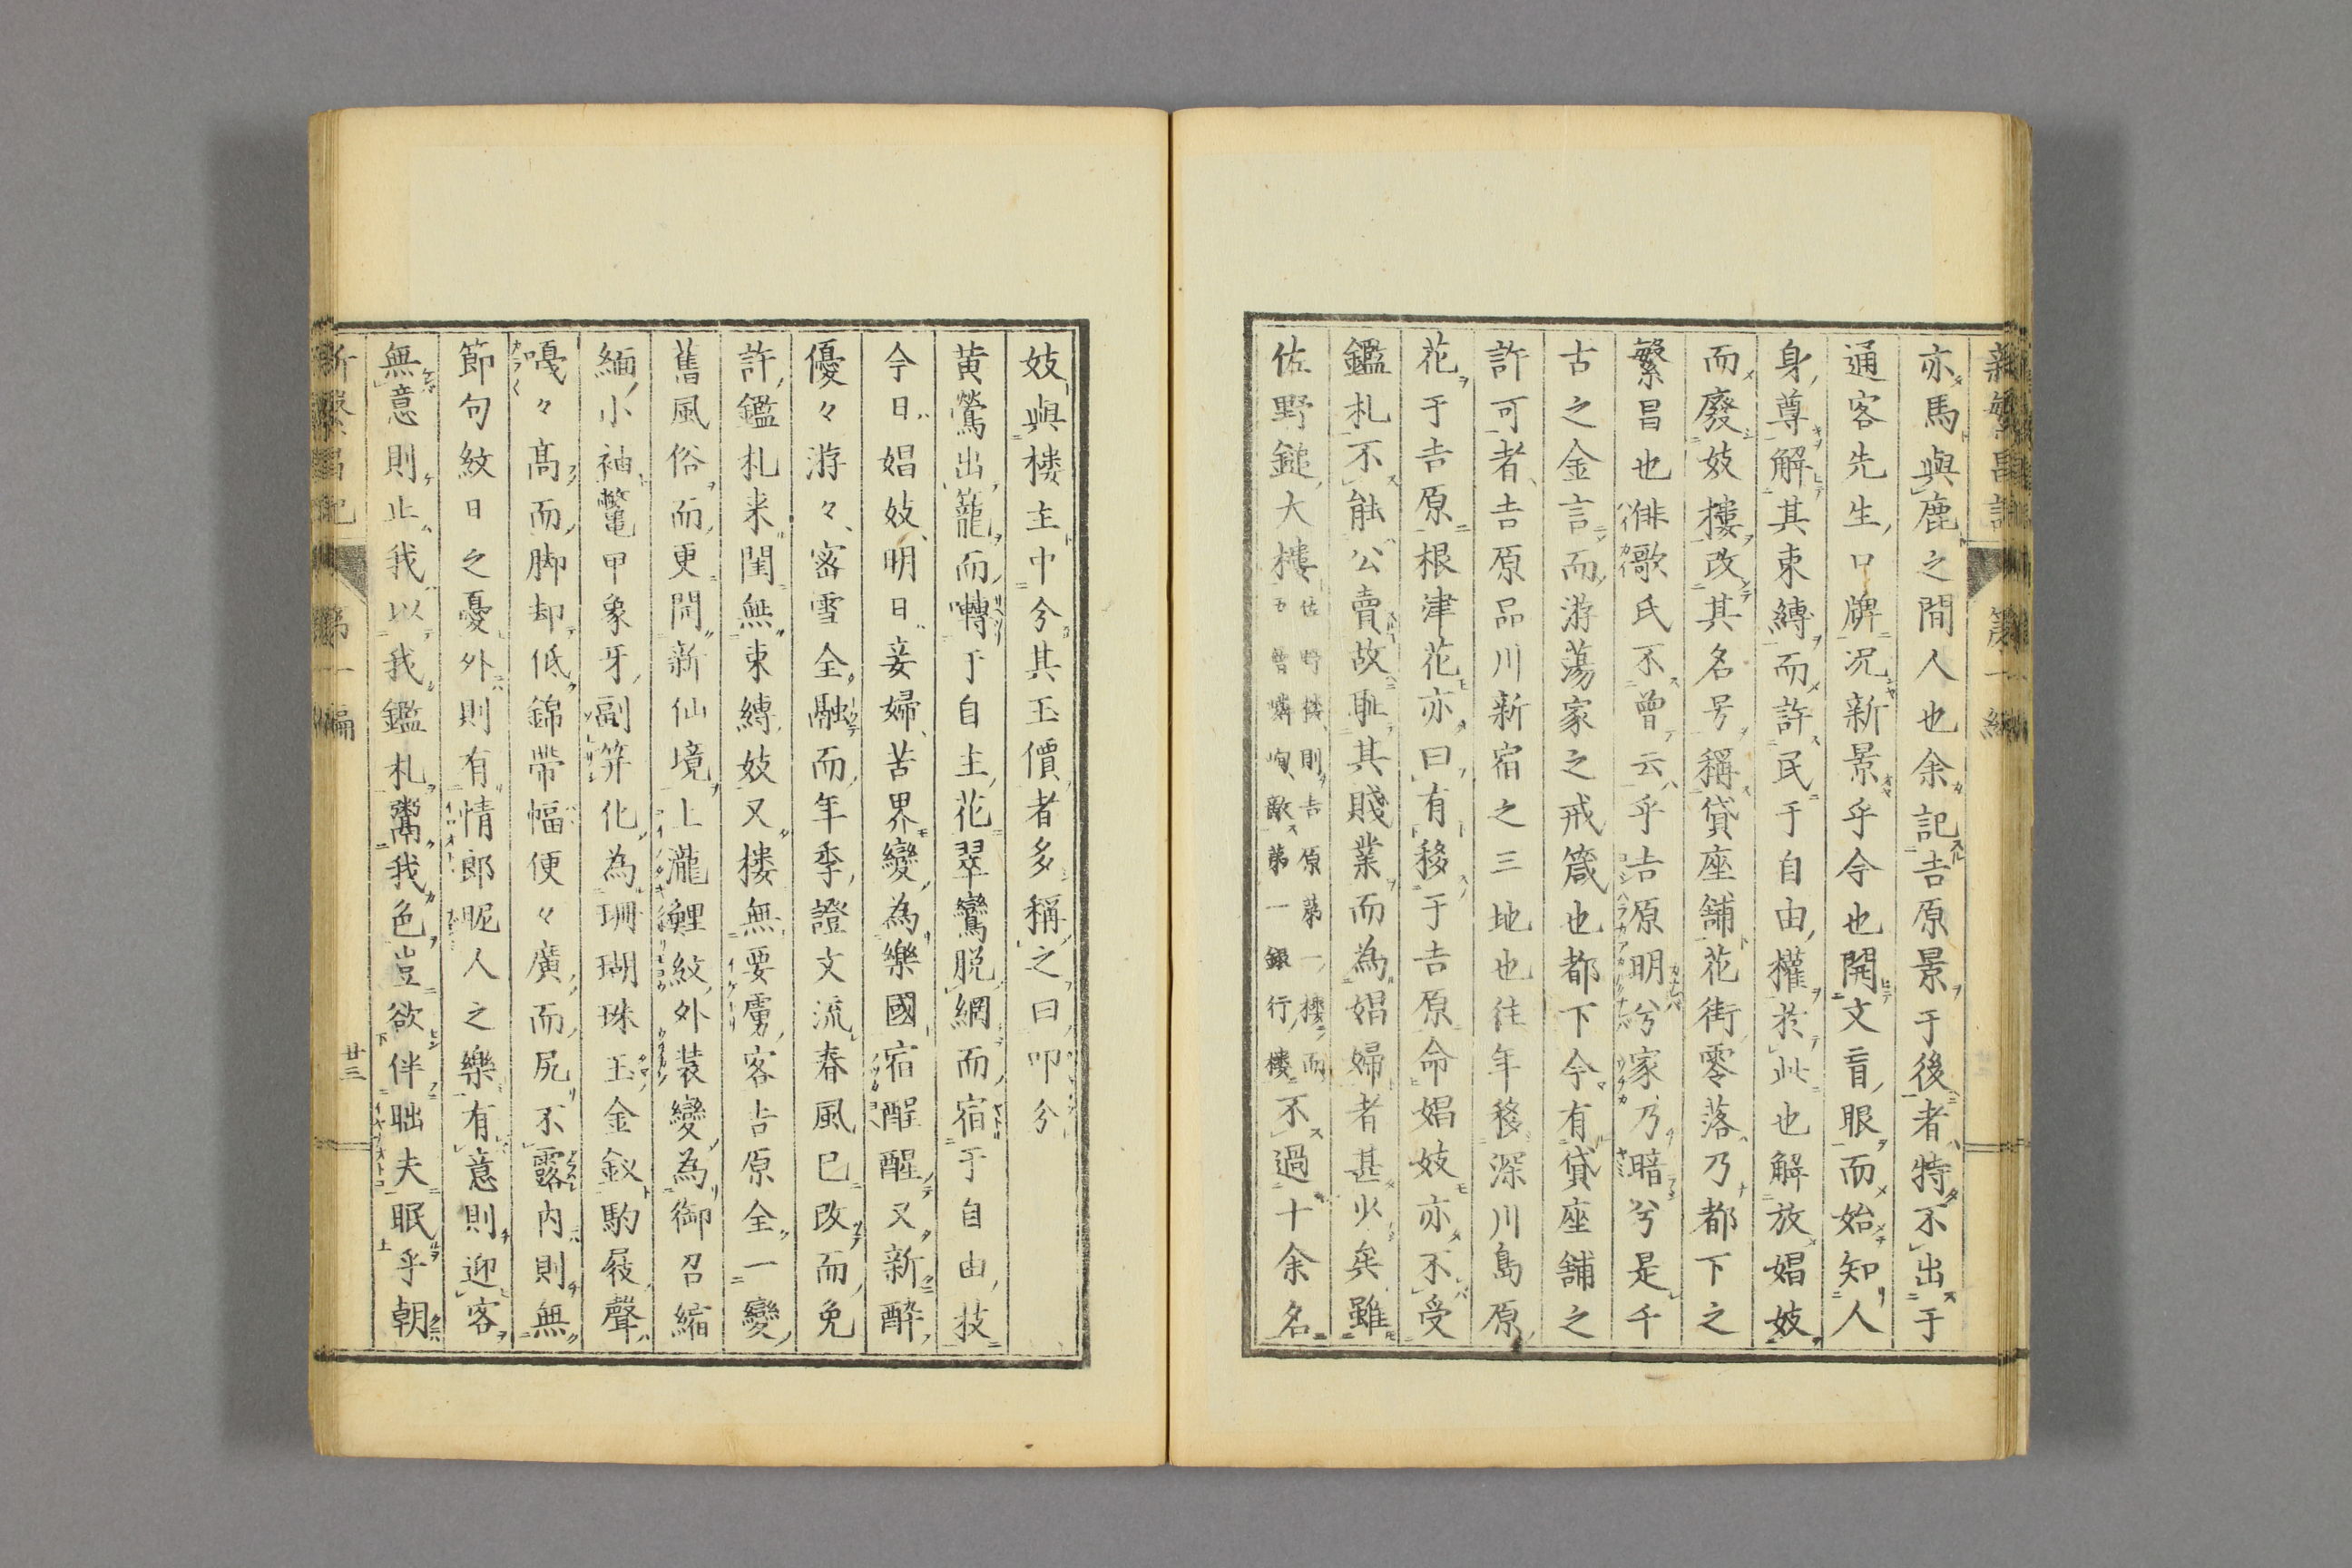 亦馬與鹿之間人也余記吉原景于後者特不出于
通客先生口牌况新景乎今也開文盲眼而始知人
身尊解其束縛而許民于自由權於此也解放娼妓
而廢妓樓改其名号稱貸座舗花街零落乃都下之
繁昌也俳歌氏不曽云乎吉原明兮家乃暗兮是千
古之金言而游蕩家之戒箴也都下今有貸座舗之
許可者吉原品川新宿之三地也往年移深川島原
花于吉原根津花亦曰有移于吉原命娼妓亦不受
鑑札不能公賣故耻其賤業而為娼婦者甚火矣雖
佐野鎚大樓佐野樓則吉原第一樓而
敵第一銀行樓不過十余名
妓與樓主中分其玉價者多稱之曰叩分
黄鶯出籠而囀于自主花翠鸞脱網而宿于自由技
今日娼妓明日妾婦苦界變為樂國宿酲醒又新醉
優々游々密雪全融而年季證文流春風已改而免
許鑑札来閨無束縛妓又樓無要虜客吉原全一變
舊風俗而更開新仙境上瀧鯉紋外装變為御召縮
緬小袖鼈甲象牙副笄化為珊瑚珠玉金釵駒屐聲
嘎々髙而脚却低錦帶幅便々廣而尻不露内則無
節句紋日之憂外則有情郎昵人之樂有意則迎客
無意則止我以我鑑札鬻我色豈欲伴朏夫眠乎朝
新繁昌記
第一編
廿三